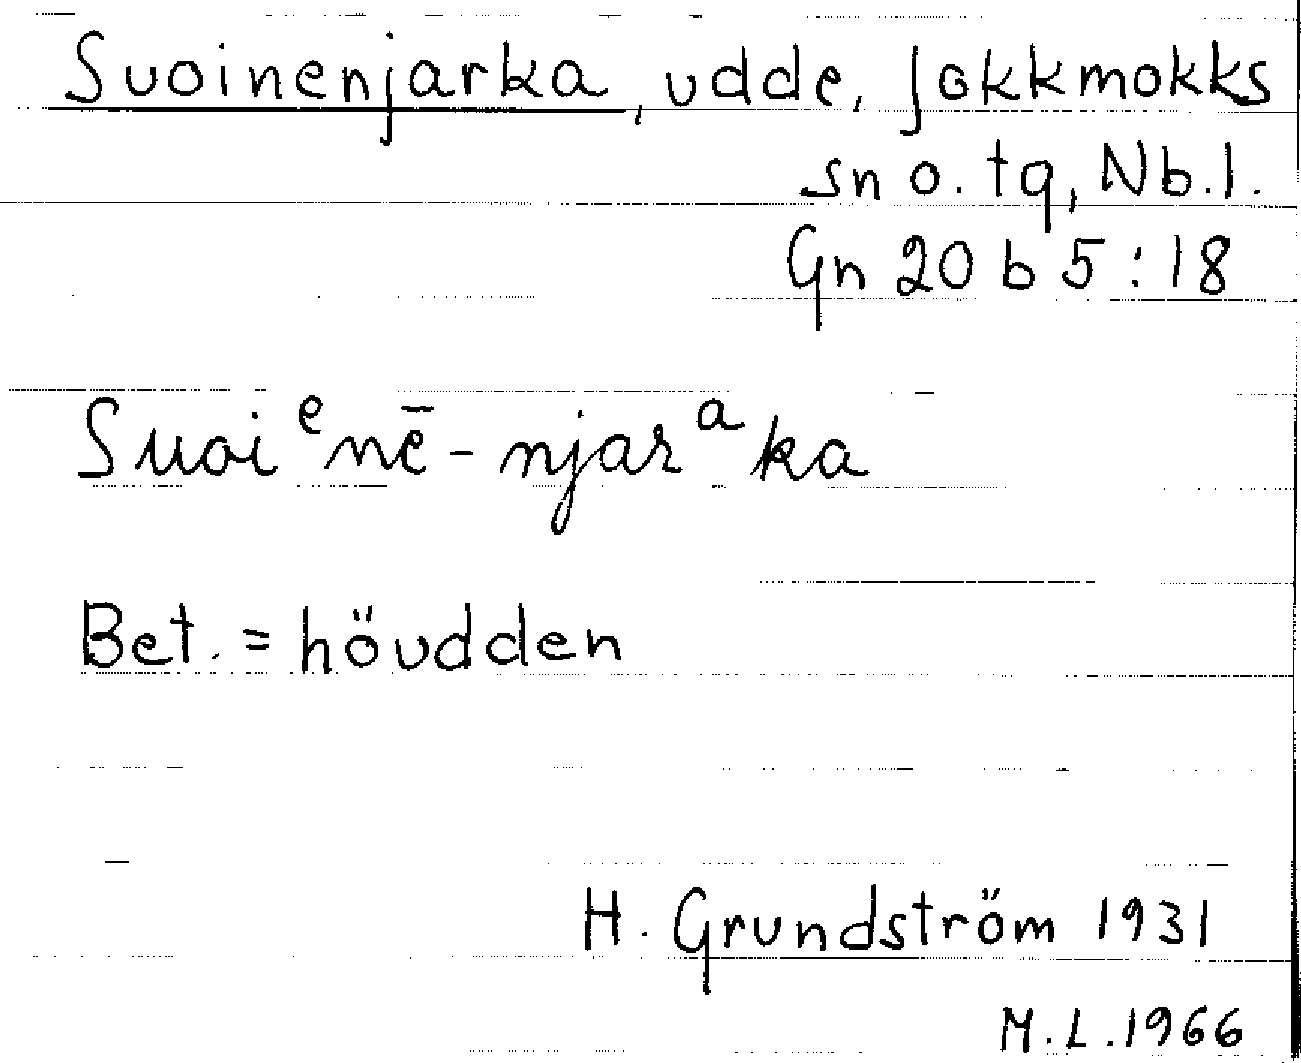 Suoinenjarka, udde, Jokkmokks
sn o. tg, Nb.l.
Gn 20 b 5:18
Suoiᵉnē-njarᵃka
Bet. = höudden
H. Grundström 1931
M.L. 1966